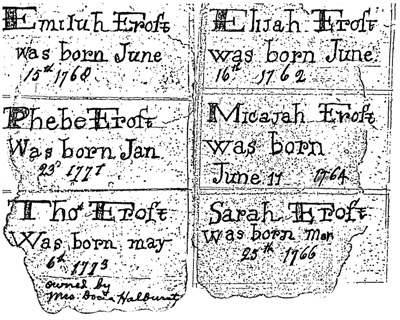 Emiluh Eroft
was born June
15th 1768
Phebe Eroft
Was born Jan
23d 1771
Thos Eroft
Was born may
6th 1773
owned by
Mrs.
Elijah Eroft
was born June
16th 1762
Micajah Eroft
was born
June 17 1764
Sarah Eroft
was born Mar
25th 1766